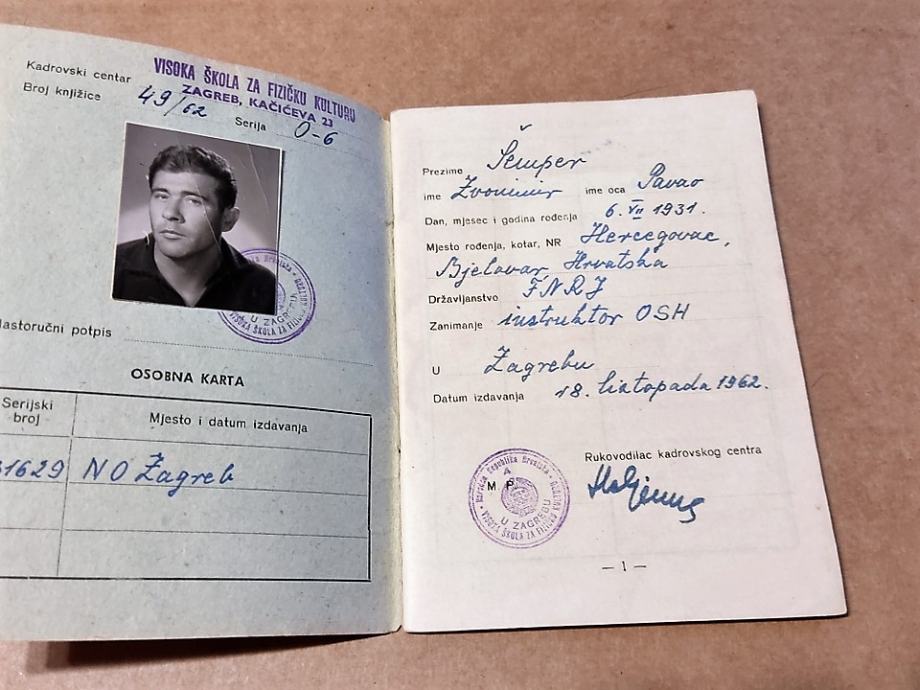 Kadrovski centar VISOKA ŠKOLA ZA FIZIČKU KULTURU
ZAGREB, KAČIĆEVA 23
Broj knjižice 49/62 Serija 0-6
U ZAGREBU
VISOKA ŠKOLA ZA FIZ
lastoručni potpis
OSOBNA KARTA
Serijski broj Mjesto i datum izdavanja
1629 NO Zagreb
Prezime Šemper
ime Zvonimir ime oca Pavao
Dan, mjesec i godina rođenja 6. VII 1931.
Mjesto rođenja, kotar, NR Hercegovac,
Bjelovar, Hrvatska
Državljanstvo FNRJ
Zanimanje instruktor OSH
U Zagrebu
Datum izdavanja 18. listopada 1962.
Rukovodilac kadrovskog centra
M P
Narodna Republika Hrvatska
U ZAGREBU
VISOKA ŠKOLA ZA FIZIČKU
— 1 —